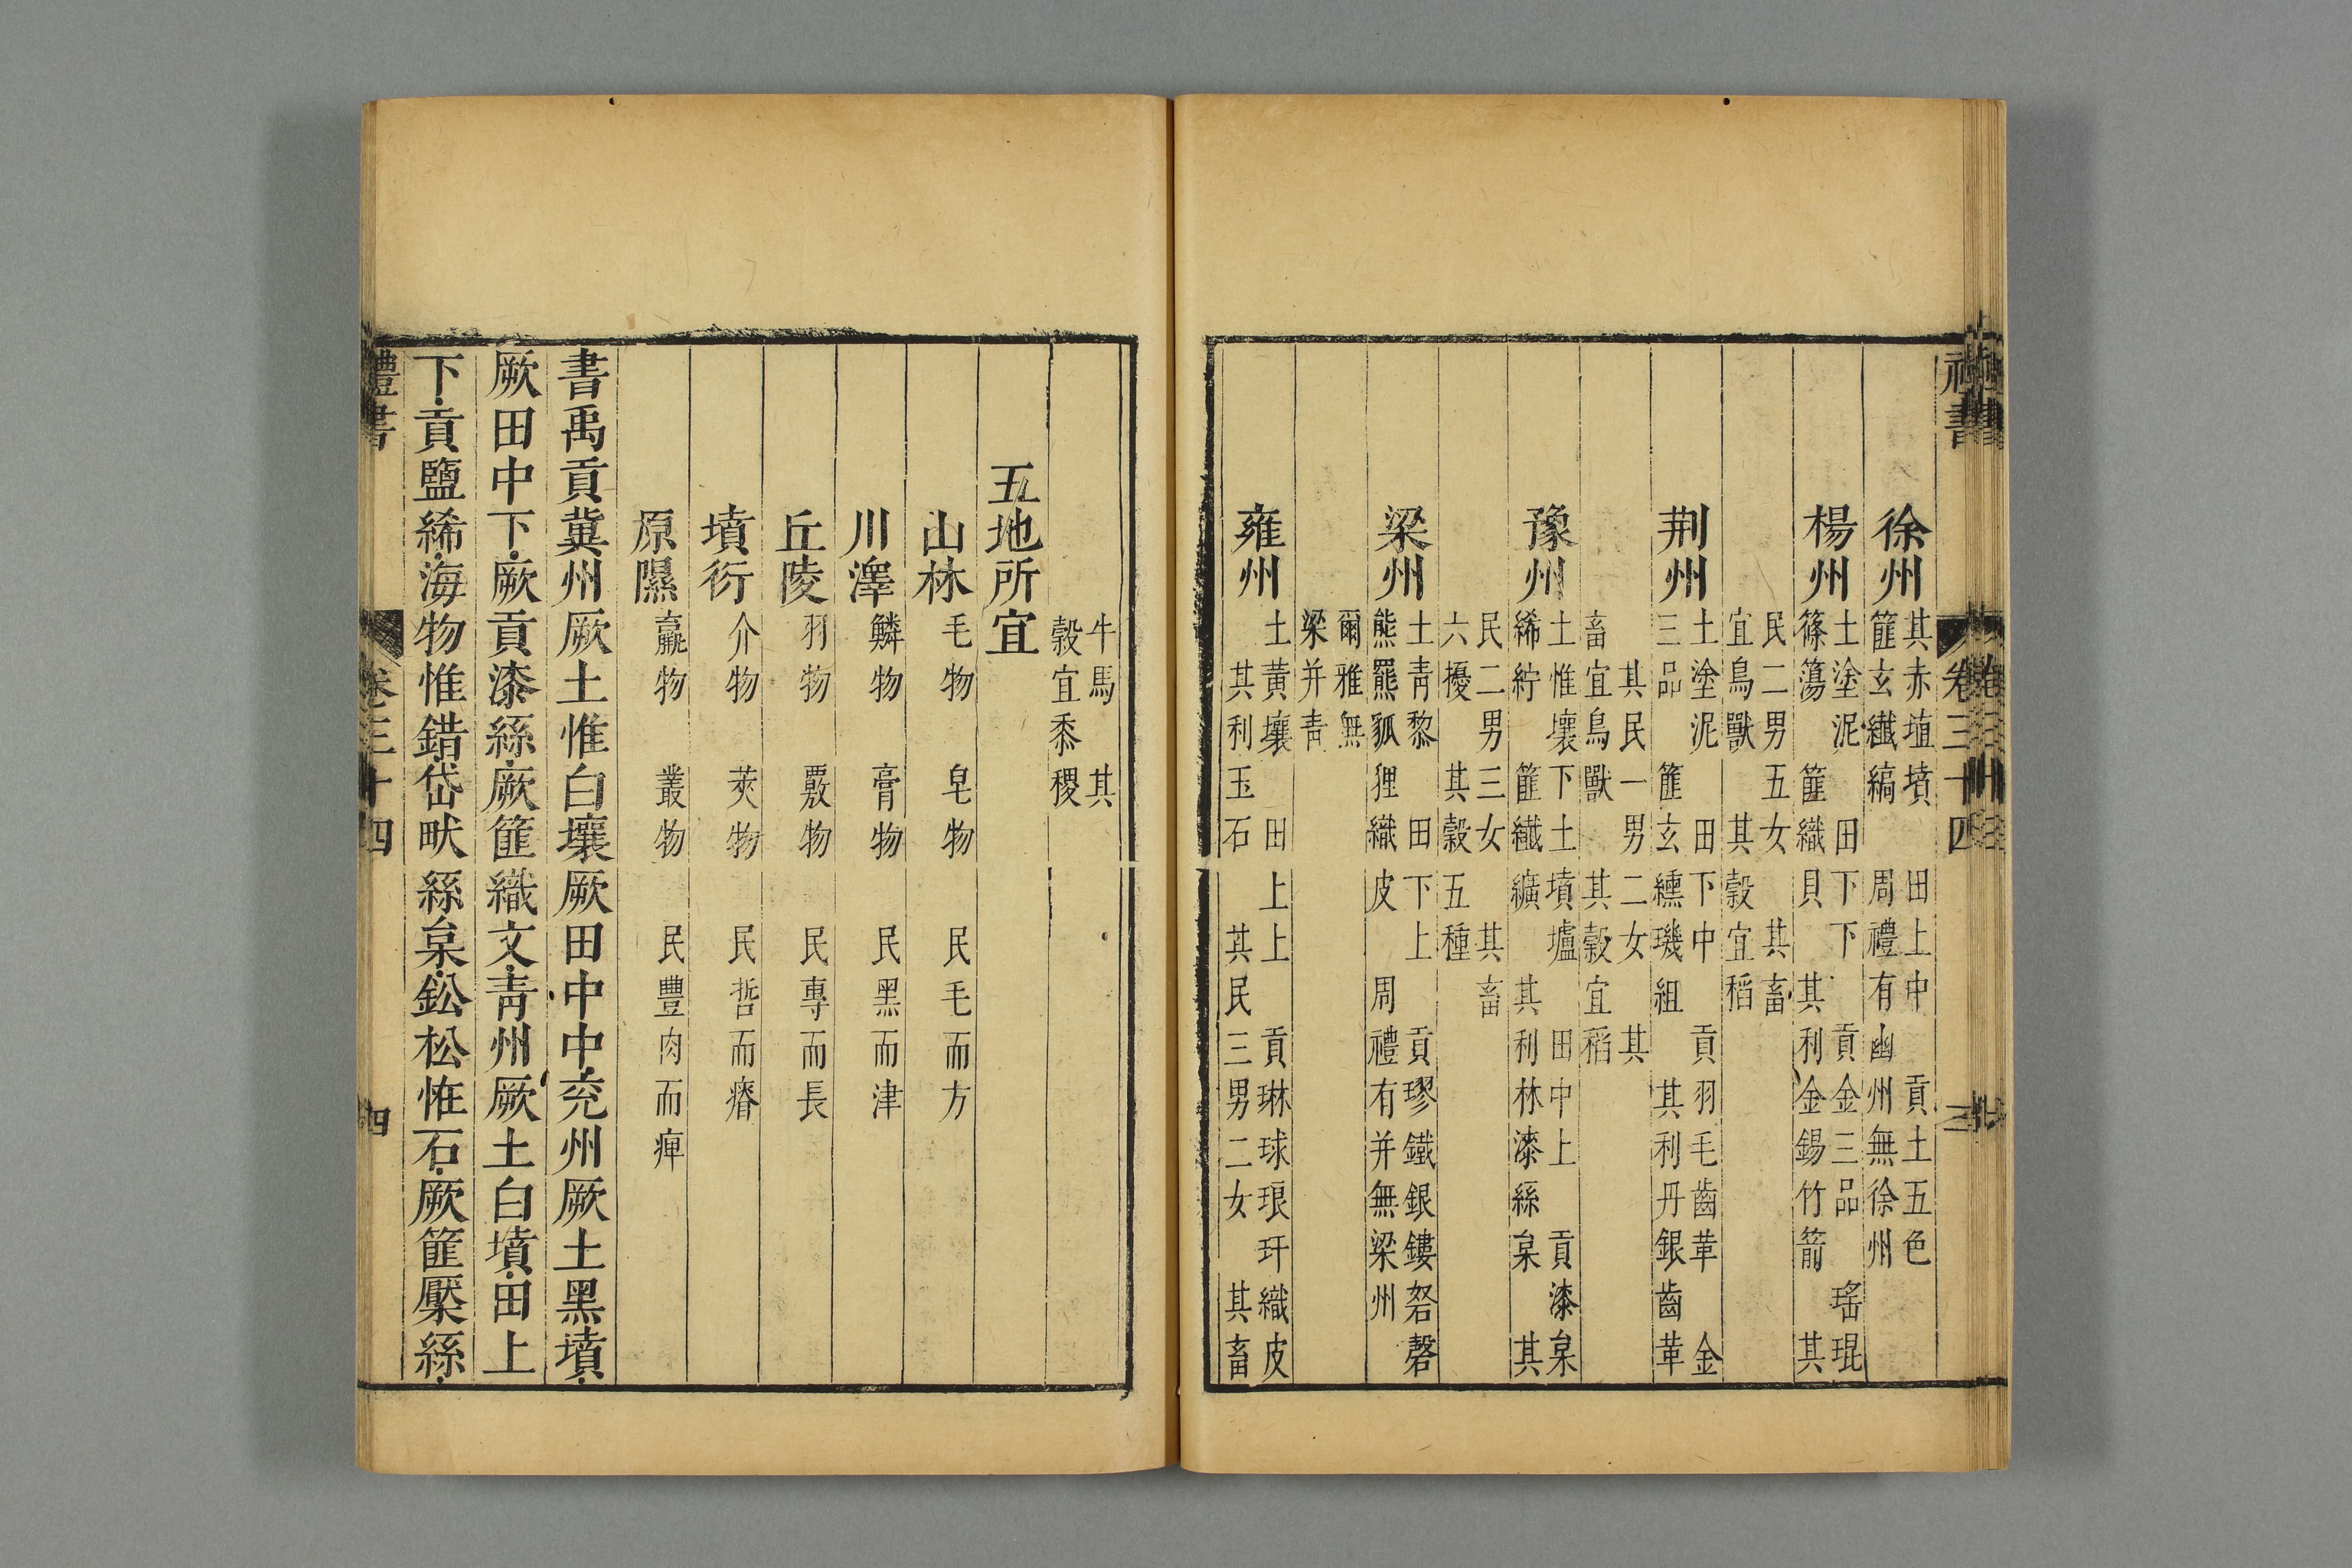 徐州
其赤埴墳 田上中 貢土五色
篚玄纖縞 周禮有幽州無徐州
楊州
土塗泥 田下下 貢金三品 瑤琨
篠簜 篚織貝 其利金錫竹箭 其
民二男五女 其畜
宜鳥獸 其穀宜稻
荆州
土塗泥 田下中 貢羽毛齒革 金
三品 篚玄纁璣組 其利丹銀齒革
其民一男二女 其
畜宜鳥獸 其穀宜稻
豫州
土惟壤下土墳壚 田中上 貢漆枲
絺紵 篚纖纊 其利林漆絲枲 其
民二男三女 其畜
六擾 其穀五種
梁州
土青黎 田下上 貢璆鐵銀鏤砮磬
熊羆狐狸織皮 周禮有并無梁州
爾雅無
梁并靑
雍州
土黃壤 田上上 貢琳球琅玕織皮
其利玉石 其民三男二女 其畜
牛馬 其
穀宜黍稷
五地所宜
山林 毛物 皂物 民毛而方
川澤 鱗物 膏物 民黑而津
丘陵 羽物 覈物 民專而長
墳衍 介物 莢物 民晳而瘠
原隰 臝物 叢物 民豐肉而痺
書禹貢冀州厥土惟白壤厥田中中兖州厥土黑墳
厥田中下厥貢漆絲厥篚織文靑州厥土白墳田上
下貢鹽絺海物惟錯岱畎絲枲鈆松恠石厥篚檿絲
禮書 卷三十四 四